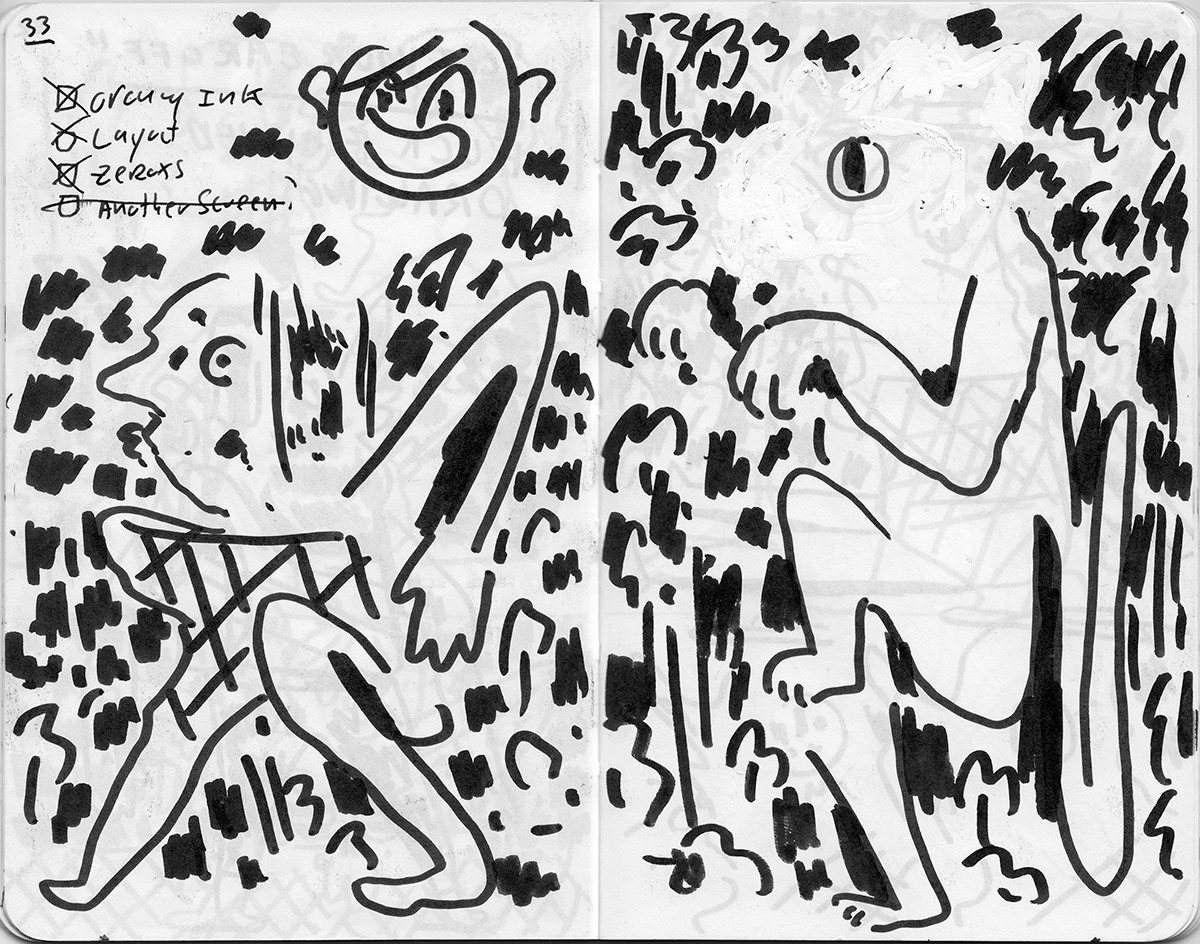 33
orang Ink
Layout
zeroxs
Another Screen?